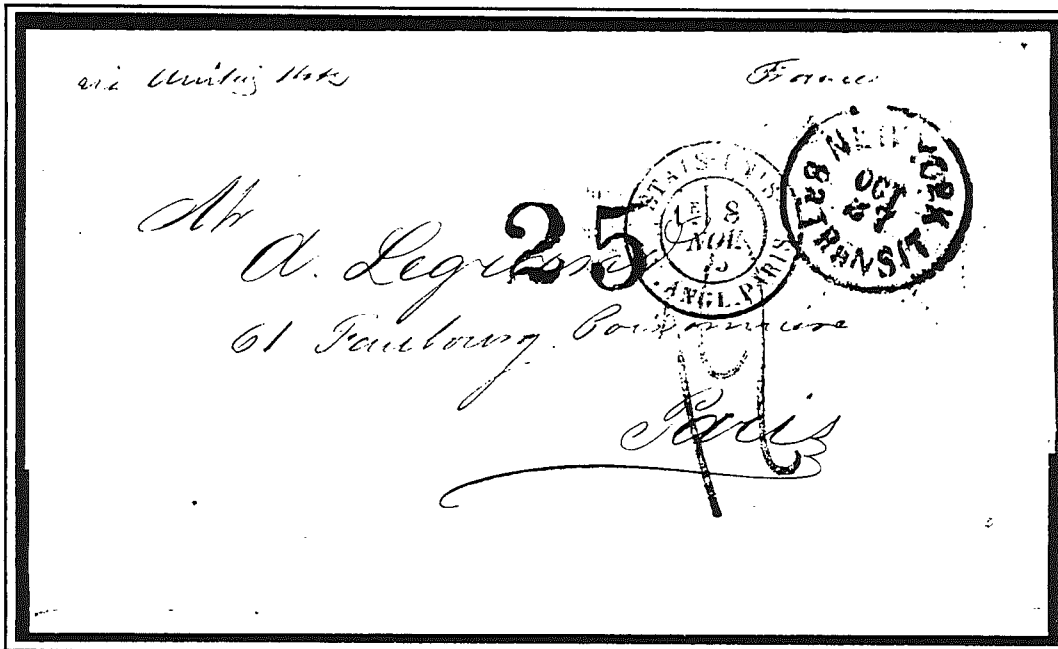 via
France
NEW YORK
OCT
27
TRANSIT
ETATS-UNIS
8
NOV.
ANGL. PARIS
25
Mr
A.
61 Faubourg Poissonnière
Paris